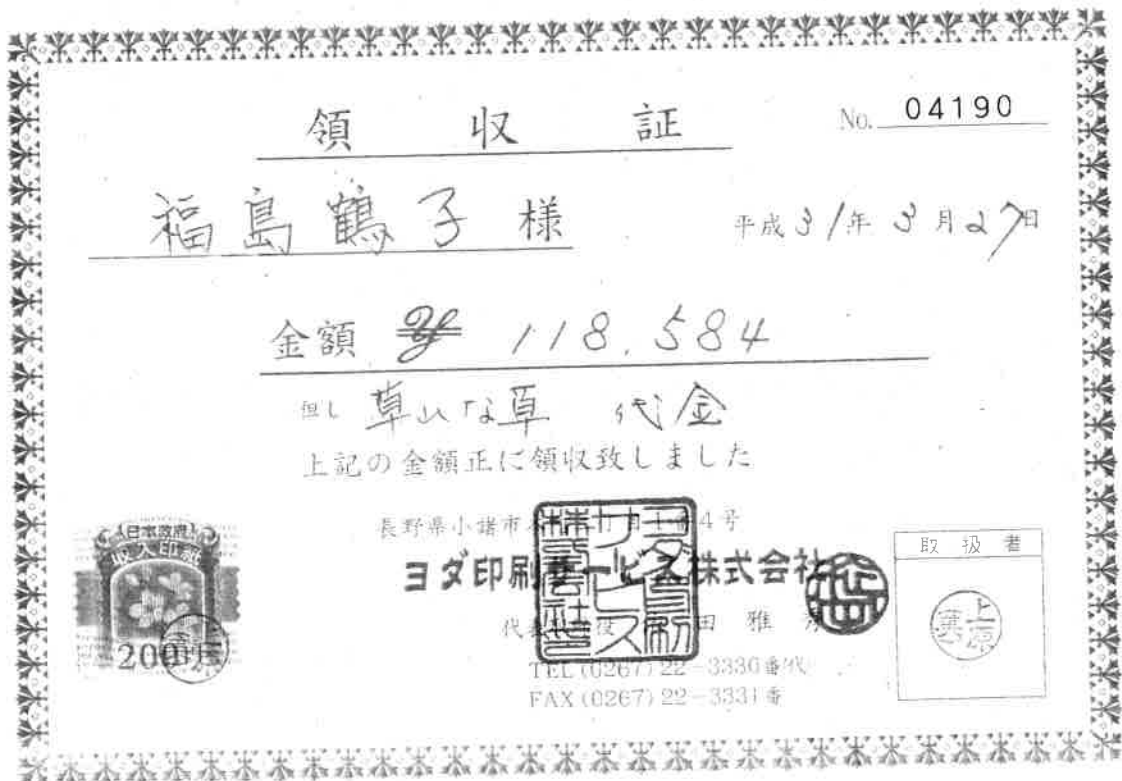 領収証
No. 04190
福島鶴子様
平成31年3月27日
金額 ¥ 118,584
但し 草ひな草 代金
上記の金額正に領収致しました
長野県小諸市 丁目1 4号
ヨダ印刷サービス株式会社
代表 役 田 雅
TEL (0267) 22-3330番(代
FAX (0267) 22-3331番
取扱者
上原
日本政府
収入印紙
200円
ヨダ印刷サービス株式会社印